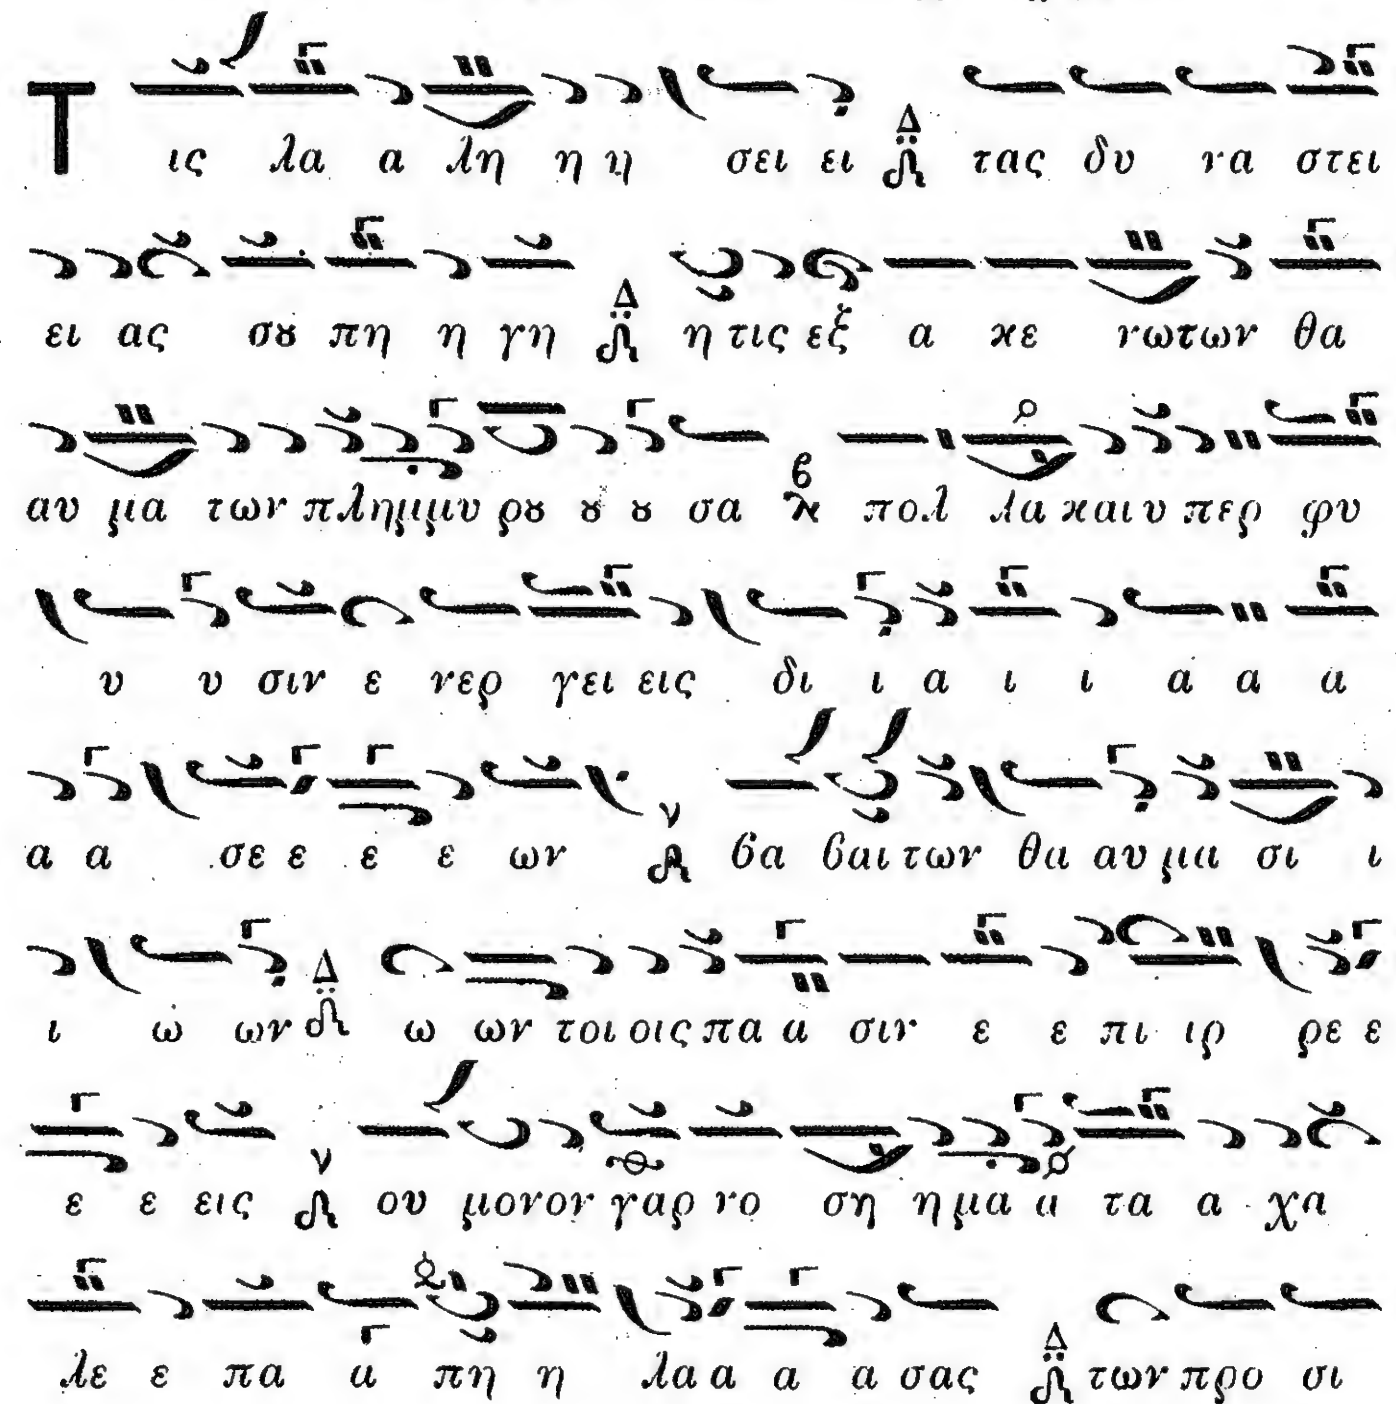 Τ ις λα α λη η η σει ει Δ τας δυ να στει
ει ας σȣ πη η γη Δ η τις εξ α κε νωτων θα
αυ μα των πλημμυ ρȣ ȣ ȣ σα β πολ λα και υ περ φυ
υ υ σιν ε νερ γει εις δι ι α ι ι α α α
α α σε ε ε ε ων ν βα βαι των θα αυ μα σι ι
ι ω ων Δ ω ων τοι οις πα α σιν ε ε πι ιρ ρε ε
ε ε εις ν ου μονον γαρ νο ση η μα α τα α χα
λε ε πα α πη η λα α α α σας Δ των προ σι